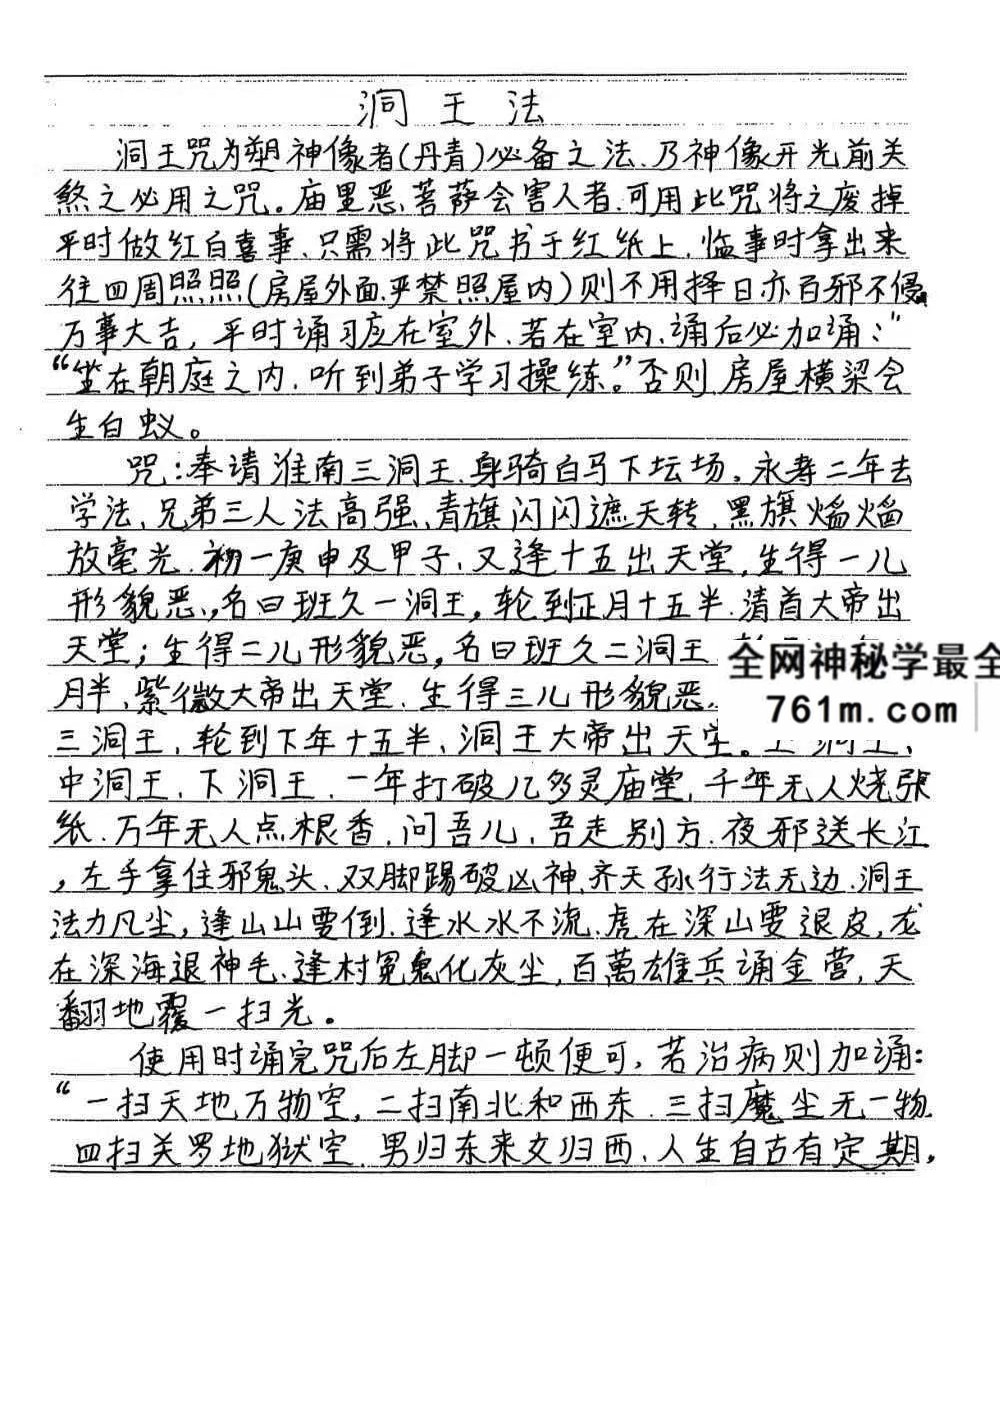 洞王法
洞王咒为塑神像者(丹青)必备之法、乃神像开光前关
煞之必用之咒。庙里恶菩萨会害人者、可用此咒将之废掉
平时做红白喜事、只需将此咒书于红纸上、临事时拿出来
往四周照照(房屋外面、严禁照屋内)则不用择日亦百邪不侵、
万事大吉,平时诵习应在室外、若在室内、诵后必加诵:"
“坐在朝庭之内、听到弟子学习操练。”否则房屋横梁会
生白蚁。
咒:奉请淮南三洞王、身骑白马下坛场。永寿二年去
学法、兄弟三人法高强、青旗闪闪遮天转、黑旗熖熖
放毫光、初一庚申及甲子、又逢十五出天堂,生得一儿
形貌恶、名曰班久一洞王,轮到正月十五半、清首大帝出
天堂;生得二儿形貌恶,名曰班久二洞王
月半、紫微大帝出天堂、生得三儿形貌恶、
三洞王、轮到下年十五半、洞王大帝出天堂。上洞王、
中洞王、下洞王、一年打破几多灵庙堂,千年无人烧张
纸、万年无人点根香、问吾儿、吾走别方、夜邪送长江
,左手拿住邪鬼头、双脚踢破凶神、齐天孙行法无边、洞王
法力凡尘,逢山山要倒、逢水水不流、虎在深山要退皮,龙
在深海退神毛、逢村冤鬼化灰尘,百萬雄兵诵金营,天
翻地覆一扫光。
使用时诵完咒后左脚一顿便可,若治病则加诵:
“一扫天地万物空,二扫南北和西东、三扫魔尘无一物、
四扫关罗地狱空、男归东来女归西、人生自古有定期,
全网神秘学最全
761m.com